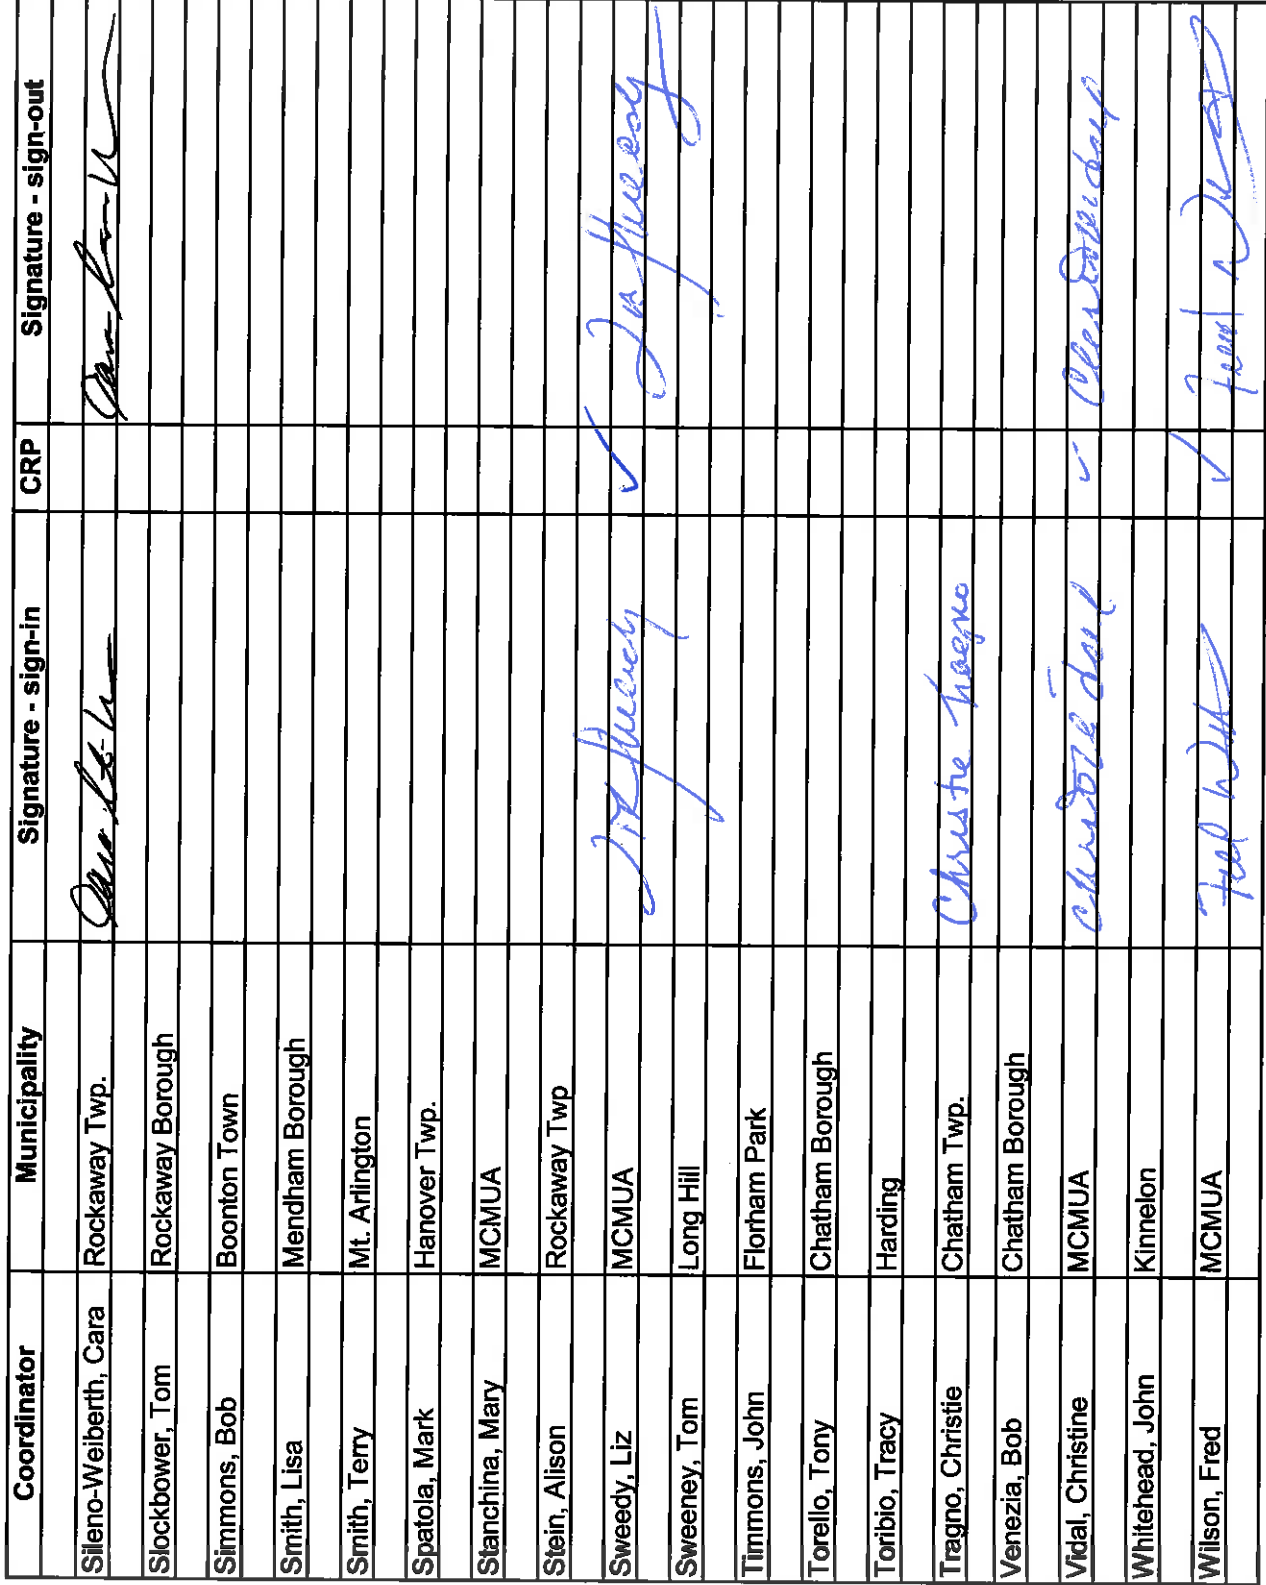 Coordinator Municipality Signature - sign-in CRP Signature - sign-out
Sileno-Weiberth, Cara Rockaway Twp.
Slockbower, Tom Rockaway Borough
Simmons, Bob Boonton Town
Smith, Lisa Mendham Borough
Smith, Terry Mt. Arlington
Spatola, Mark Hanover Twp.
Stanchina, Mary MCMUA
Stein, Alison Rockaway Twp
Sweedy, Liz MCMUA ✓
Sweeney, Tom Long Hill
Timmons, John Florham Park
Torello, Tony Chatham Borough
Toribio, Tracy Harding
Tragno, Christie Chatham Twp. Christie Tragno
Venezia, Bob Chatham Borough
Vidal, Christine MCMUA ✓
Whitehead, John Kinnelon
Wilson, Fred MCMUA Fred ✓